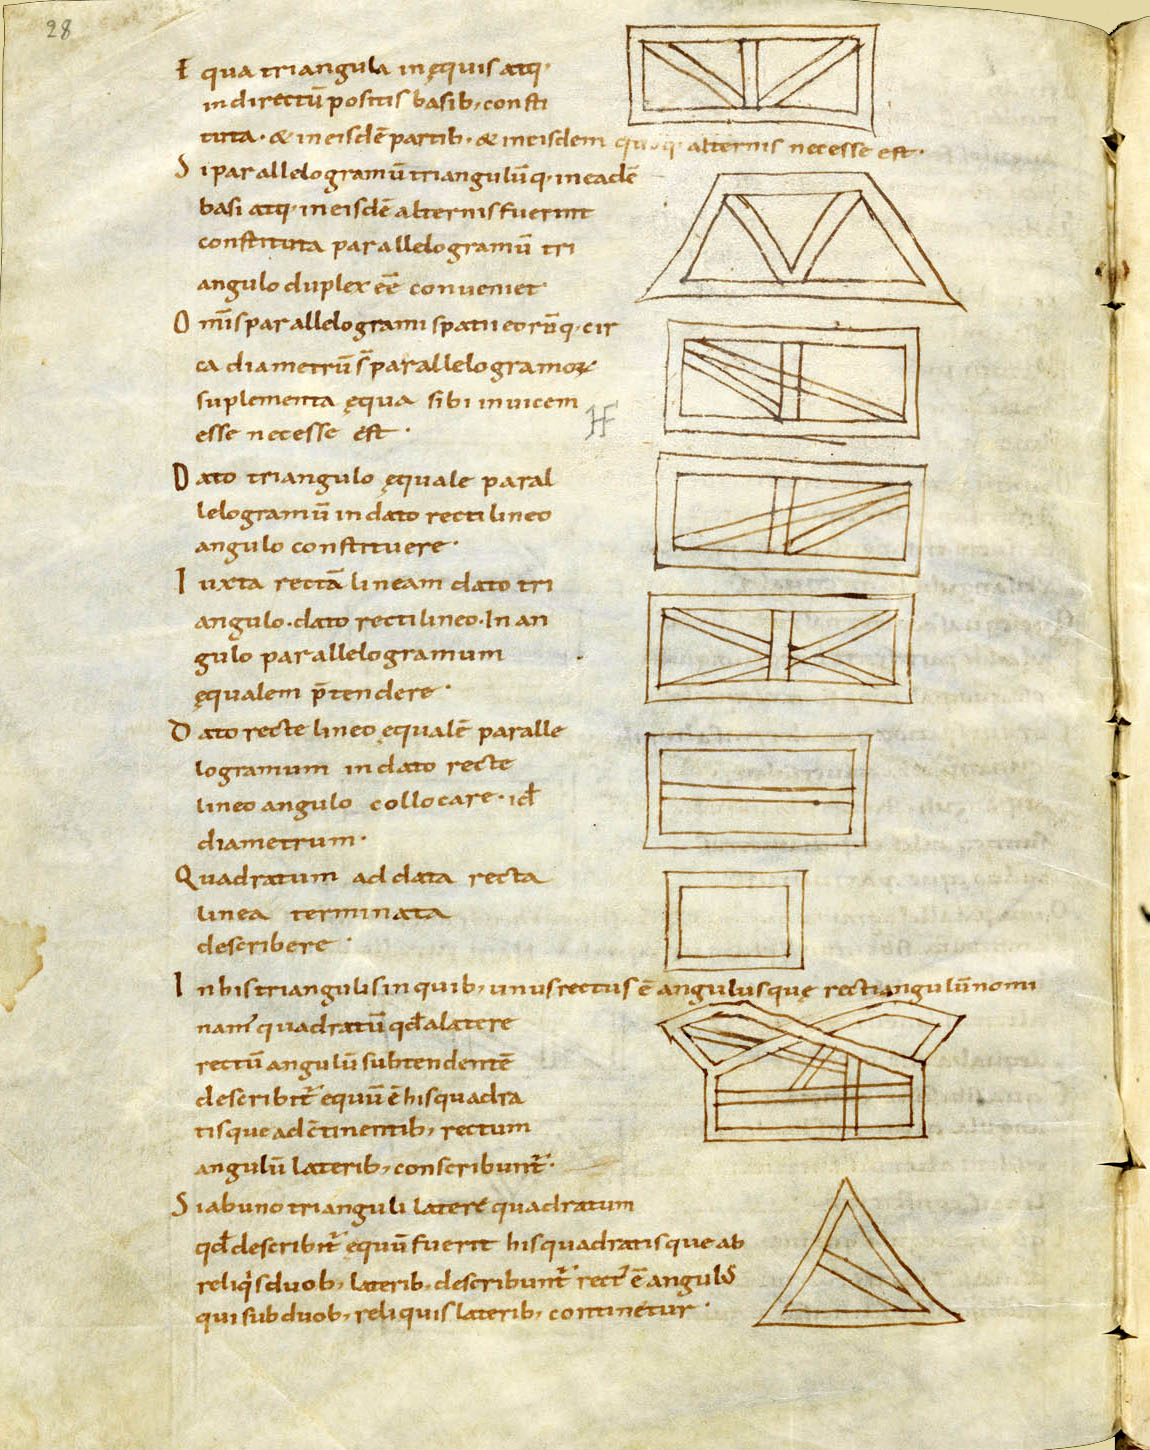 28
Equa triangula in ęquis atq;
in directū positis basib; consti
tuta · & in eisdē partib; & in eisdem quoq; alternis necesse est ·
Si parallelogramū triangulūq; in eadē
basi atq; in eisdē alternis fuerint
constituta parallelogramū tri
angulo duplex eē conveniet ·
Omīs parallelogrami spatii eorūq; cir
ca diametrū s̄ parallelogramoꝝ
suplementa ęqua sibi invicem
esse necesse est ·
Dato triangulo ęquale paral
lelogramū in dato rectilineo
angulo constituere ·
Iuxta rectā lineam dato tri
angulo · dato rectilineo · In an
gulo parallelogramum
ęqualem p̄tendere ·
Dato recte lineo ęqualē paralle
logramum in dato recte
lineo angulo collocare · id
diametrum ·
Quadratum ad data recta
linea terminata
describere ·
In his triangulis in quib; unus rectus ē angulus quę rectiangulū nomi
nam̄ quadratū qđ a latere
rectū angulū subtendentē
describit̄ equū ē his quadra
tis que ad c̄tinentib; rectum
angulū laterib; conscribunt̄ ·
Si ab uno trianguli latere quadratum
qđ describit̄ ęquū fuerit his quadratis que ab
reliq̇s duob; laterib; describunt̄ rect' ē angulus
qui sub duob; reliquis laterib; continetur ·